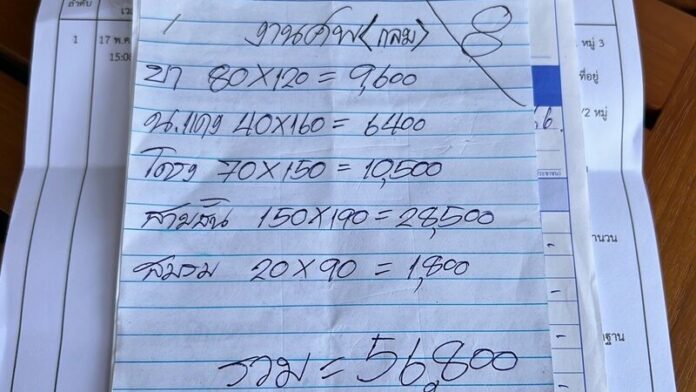 ลำดับ
1 17 พ.ค.
15:0
งานศพ (กลม) 8
ขา 80 X 120 = 9,600
น.แดง 40 X 160 = 6400
โครง 70 X 150 = 10,500
สามชั้น 150 X 190 = 28,500
20 X 90 = 1,800
รวม = 56,800
หมู่ 3
ที่อยู่
/2 หมู่
6.